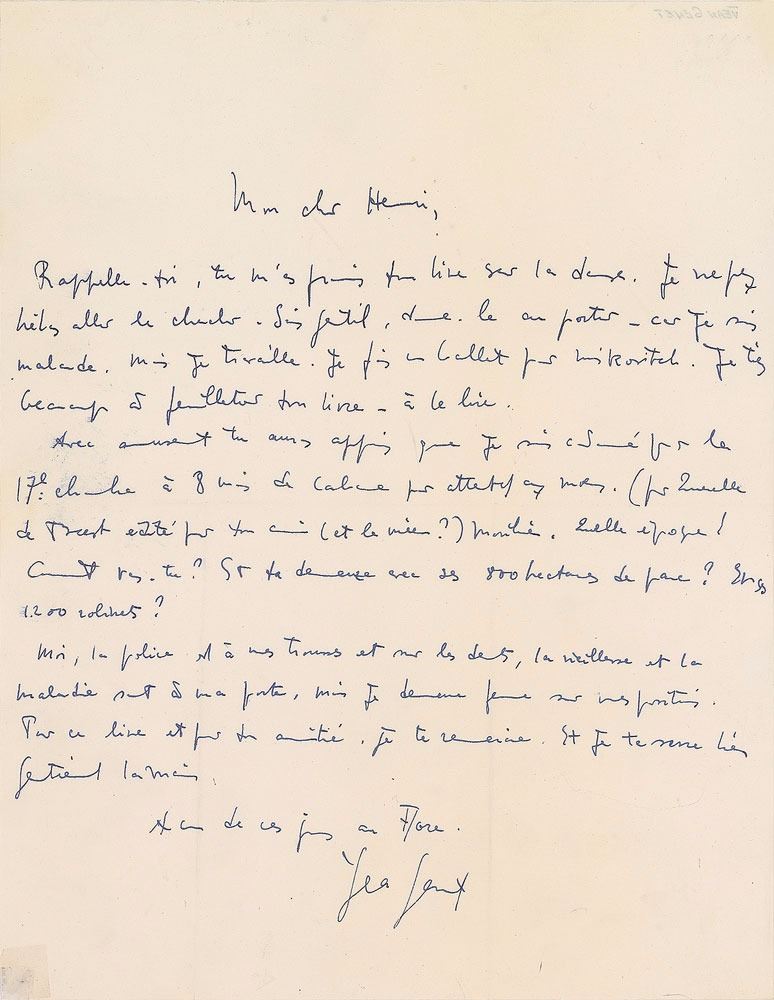 JEAN GENET
Mon cher Henri,
Rappelle-toi, tu m'as promis ton livre sur la danse. Je ne peux
hélas aller le chercher. Sois gentil, donne-le au porteur - car je suis
malade. Mais je travaille. Je fais un ballet pour Miskovitch. Je tiens
beaucoup à feuilleter ton livre - à le lire.
Avec amusement tu auras appris que je suis condamné par la
17e chambre à 8 mois de cabane pour attentat aux mœurs. (pour Querelle
de Brest édité par ton ami (et le mien?) Morihien. Quelle époque!
Comment vas-tu? Et ta demeure avec ses 800 hectares de parc? Et ses
1.200 robinets?
Moi, la police est à mes trousses et sur les dents, la vieillesse et la
maladie sont à ma porte, mais je demeure ferme sur mes positions.
Pour ce livre et pour ton amitié, je te remercie. Et je te serre très
gentiment la main.
A un de ces jours au Flore.
Jean Genet